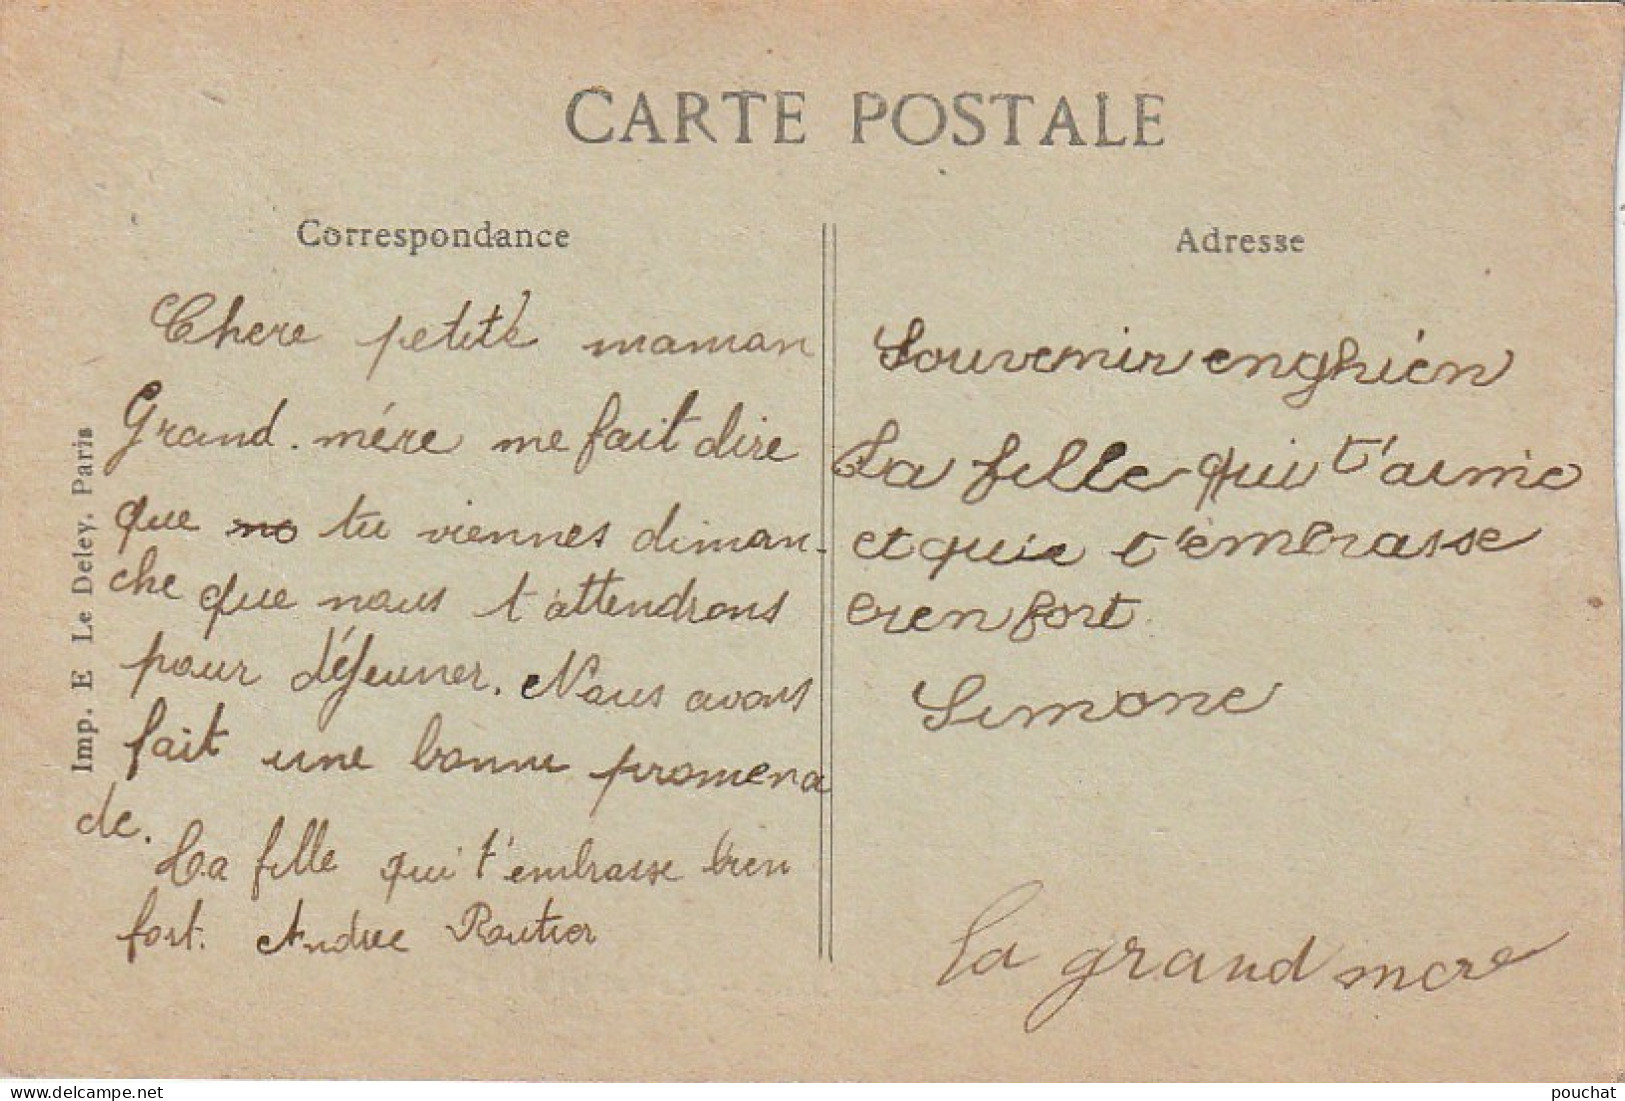 CARTE POSTALE
Correspondance
Chere petite maman
Grand-mére me fait dire
que no tu viennes diman-
che que nous t'attendrons
pour déjeuner. Nous avons
fait une bonne promena
de.
La fille qui t'embrasse bien
fort. Andree Routier
Imp. E Le Deley, Paris
Adresse
Souvenir enghien
La fille qui t'aime
et quie t'embrasse
bien fort
Simone
La grand mere
pouchat